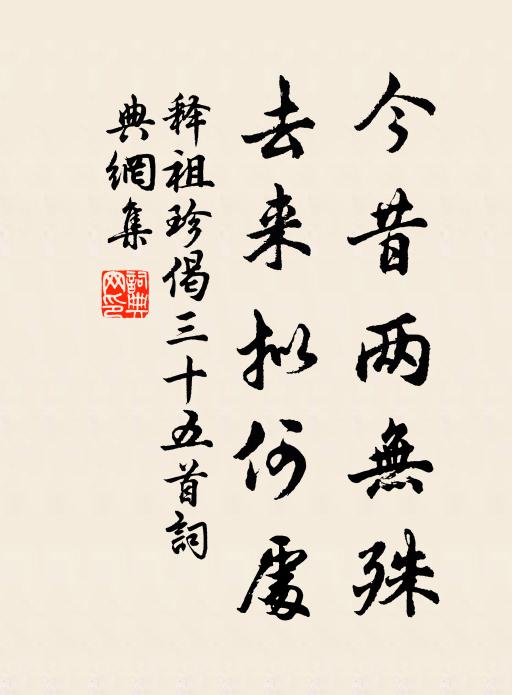 今昔两無殊
去来拟何處
释祖珍偈三十五首詞
典網集
詞典网印